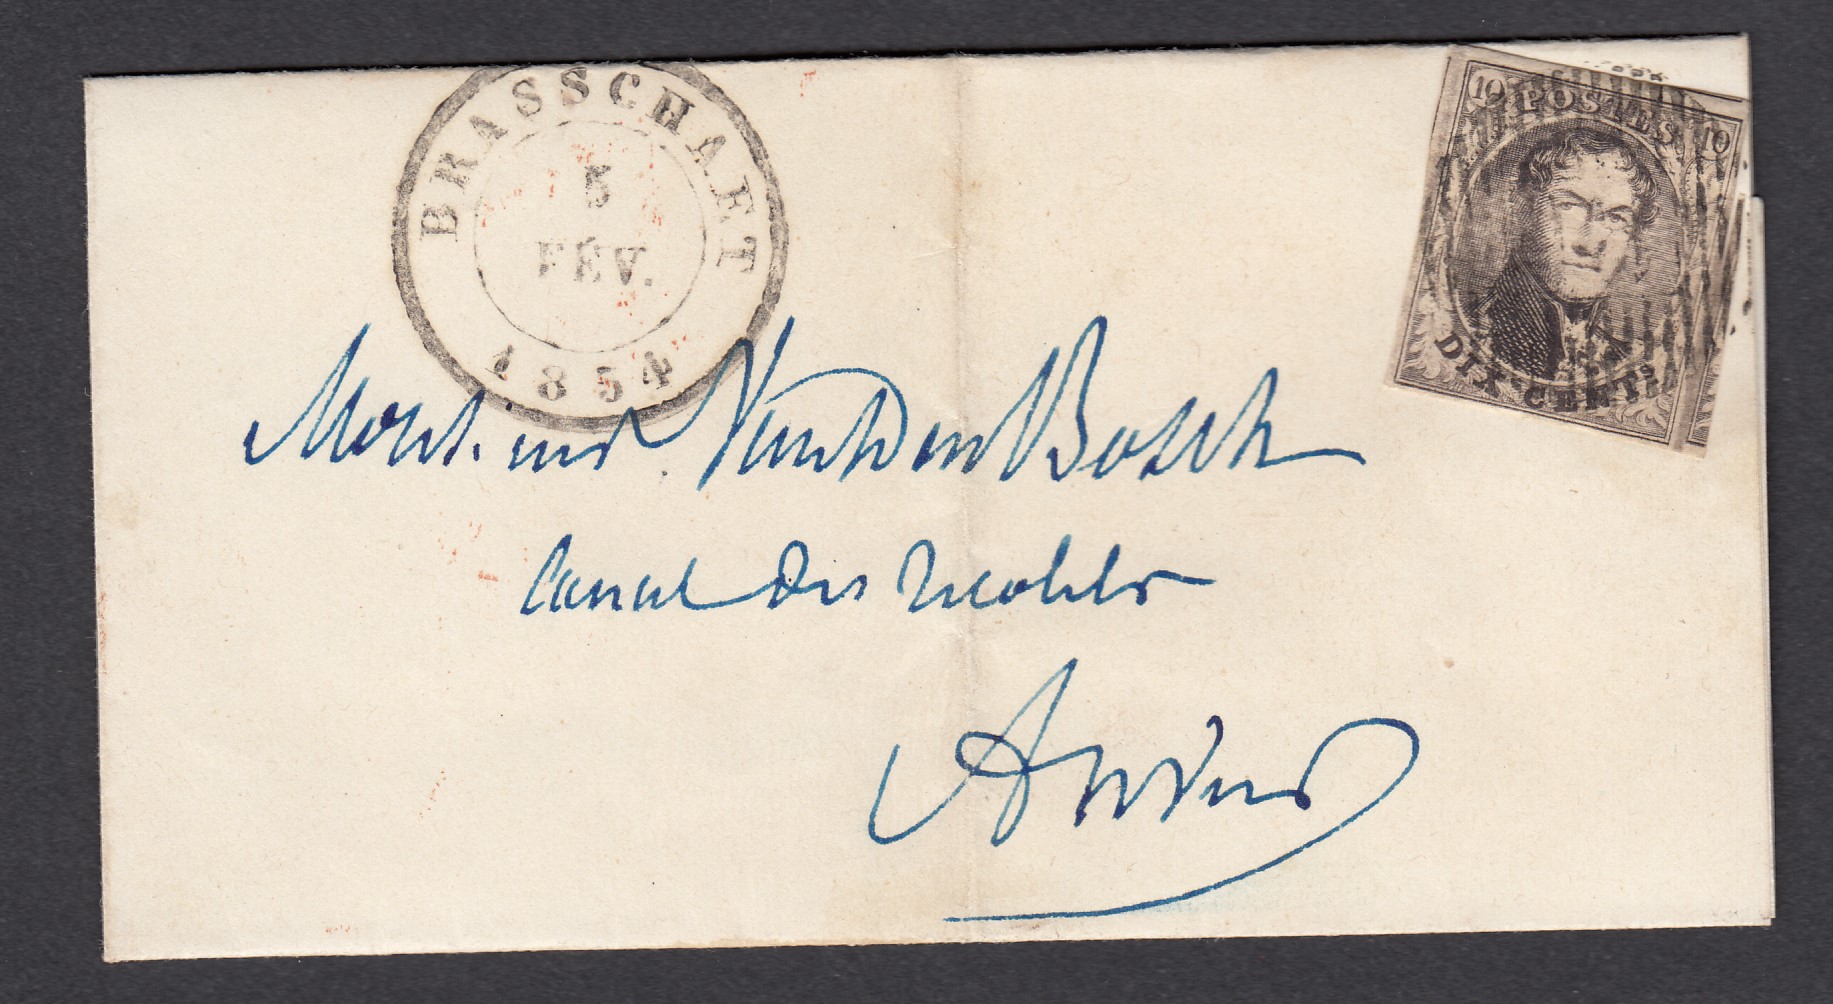 BRASSCHAET
5
FÉV.
1854
10 POSTES 10
DIX CENTS
Monsieur Van den Bosch
Canal des Récollets
Anvers